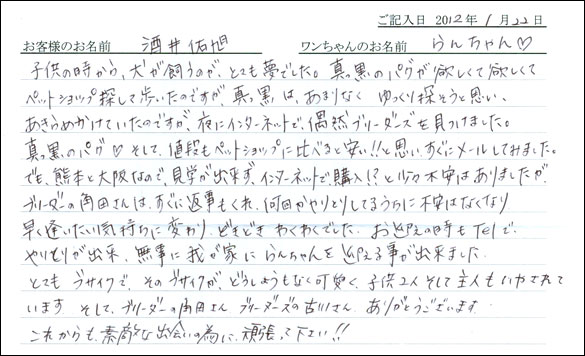 ご記入日 2012年 1月 22日
お客様のお名前 酒井佑旭 ワンちゃんのお名前 らんちゃん♡
子供の時から、犬が飼うのが、とても夢でした。真っ黒のパグが欲しくて欲しくて
ペットショップ探して歩いたのですが、真っ黒は、あまりなく ゆっくり探そうと思い、
あきらめかけていたのですが、夜にインターネットで、偶然ブリーダーズを見つけました。
真っ黒のパグ♡そして、値段もペットショップに比べると安い!!と思い、すぐにメールしてみました。
でも、熊本と大阪なので、見学が出来ず、インターネットで購入!?と少々不安はありましたが、
ブリーダーの角田さんは、すぐに返事もくれ、何回かやりとりしてるうちに不安はなくなり
早く逢いたい気持ちに変わり、どきどきわくわくでした。お迎えの時もTelで、
やりとりが出来、無事に我が家にらんちゃんを迎える事が出来ました。
とてもブサイクで、そのブサイクが、どうしようもなく可愛く、子供2人そして主人もいやされて
います そして、ブリーダーの角田さん ブリーダーズの古川さん、ありがとうございます
これからも、素敵な出会いの為に、頑張って下さい!!